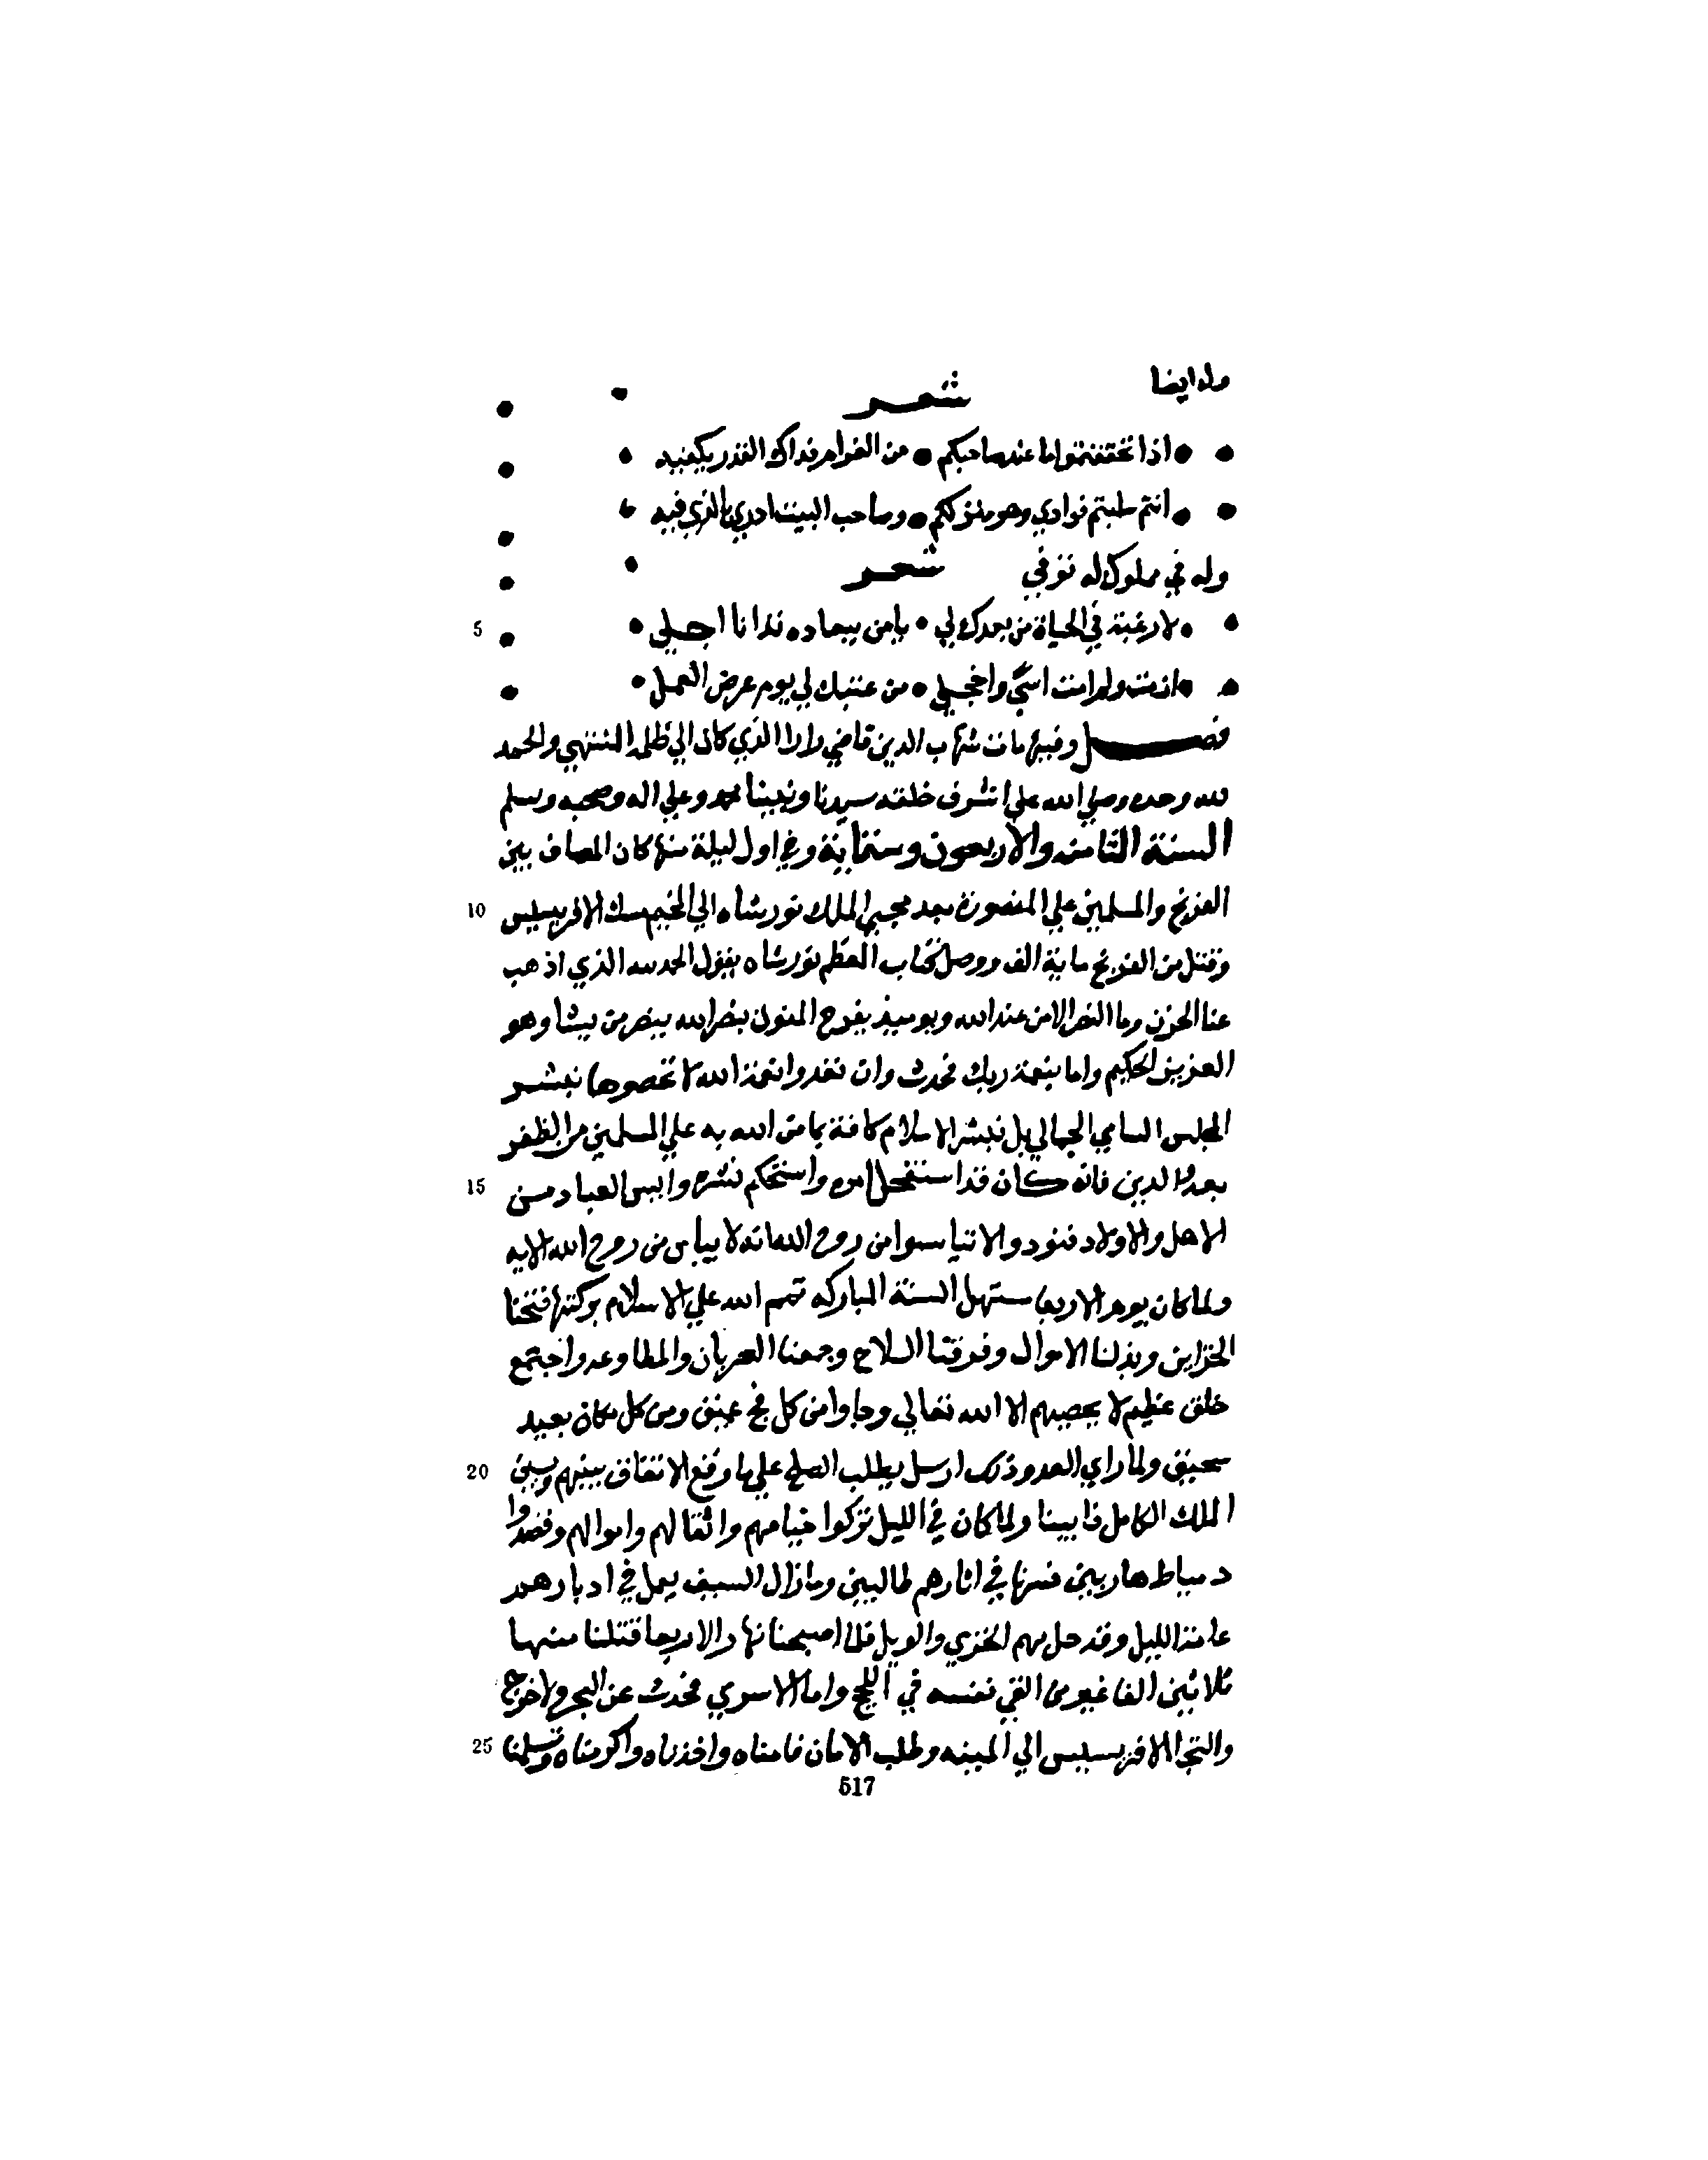 وله ايضا شعر
اذا تحققتموا ما عند صاحبكم • من الغرام فذاك القدر يكفيه
انتم سلبتم فوادي وهو منزلكم • وصاحب البيت ادري بالذي فيه
وله في مملوك له توفي شعر
5 لا رغبة في الحياة من بعدك لي • يا من ببعاده تدانا اجلي
ان مت ولم امت اسي واخجلي • من عتبك لي يوم عرض العمل
فصل وفيها مات شهاب الدين قاضي دارا الذي كان الي ظلمه المنتهي والحمد
لله وحده وصلي الله علي اشرف خلقه سيدنا ونبينا محمد وعلي اله وصحبه وسلم
السنة الثامنه والاربعون وستماية وفي اول ليلة منها كان المصاف بين
10 الفرنج والمسلمين علي المنصورة بعد مجيي الملك تورنشاه الي المخيم مسك الافرنسيس
وقتل من الفرنج ماية الف ووصل كتاب المعظم تورنشاه يقول الحمد لله الذي اذهب
عنا الحزن وما النصر الا من عند الله ويوميذ يفرح المنون بنصر الله ينصر من يشا وهو
العزيز الحكيم واما بنعمة ربك فحدث وان تعدوا نعمة الله لا تحصوها نبشر
المجلس السامي الجمالي بل نبشر الاسلام كافة بما من الله به علي المسلمين من الظفر
15 بعدو الدين فانه كان قد استفحل امره واستحكم شره وايس العباد من
الاهل والاولاد فنودوا لا تياسوا من روح الله انه لا يياس من روح الله الايه
ولما كان يوم الاربعا مستهل السنة المباركه تمم الله علي الاسلام بركتها فتحنا
الخزاين وبذلنا الاموال وفرقنا السلاح وجمعنا العربان والمطاوعه واجتمع
خلق عظيم لا يحصيهم الا الله تعالي وجاوا من كل فج عميق ومن كل مكان بعيد
20 سحيق ولما راي العدو ذلك ارسل يطلب الصلح علي ما وقع الاتفاق بينهم وبين
الملك الكامل فابينا ولما كان في الليل تركوا خيامهم واثقالهم واموالهم وقصدوا
دمياط هاربين فسرنا في اثارهم طالبين ومازال السيف يعمل في ادبارهم
عامة الليل وقد حل بهم الخزي والويل فلما اصبحنا نهار الاربعا قتلنا منهما
ثلاثين الفا غير من القي نفسه في اللجج واما الاسري فحدث عن البحر ولا حرج
25 والتجا الافرنسيس الي المينه وطلب الامان فامناه واخذناه واكرمناه وتسلمنا
517